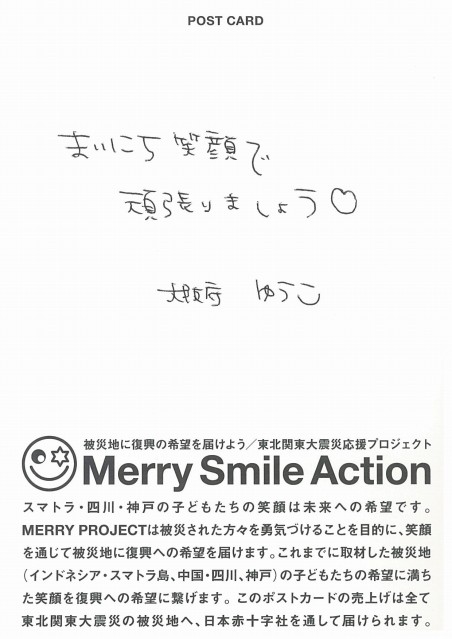 POST CARD
まいにち笑顔で
頑張りましょう♡
大阪府 ゆうこ
被災地に復興の希望を届けよう／東北関東大震災応援プロジェクト
Merry Smile Action
スマトラ・四川・神戸の子どもたちの笑顔は未来への希望です。
MERRY PROJECTは被災された方々を勇気づけることを目的に、笑顔
を通じて被災地に復興への希望を届けます。これまでに取材した被災地
（インドネシア・スマトラ島、中国・四川、神戸）の子どもたちの希望に満ち
た笑顔を復興への希望に繋げます。このポストカードの売上げは全て
東北関東大震災の被災地へ、日本赤十字社を通して届けられます。